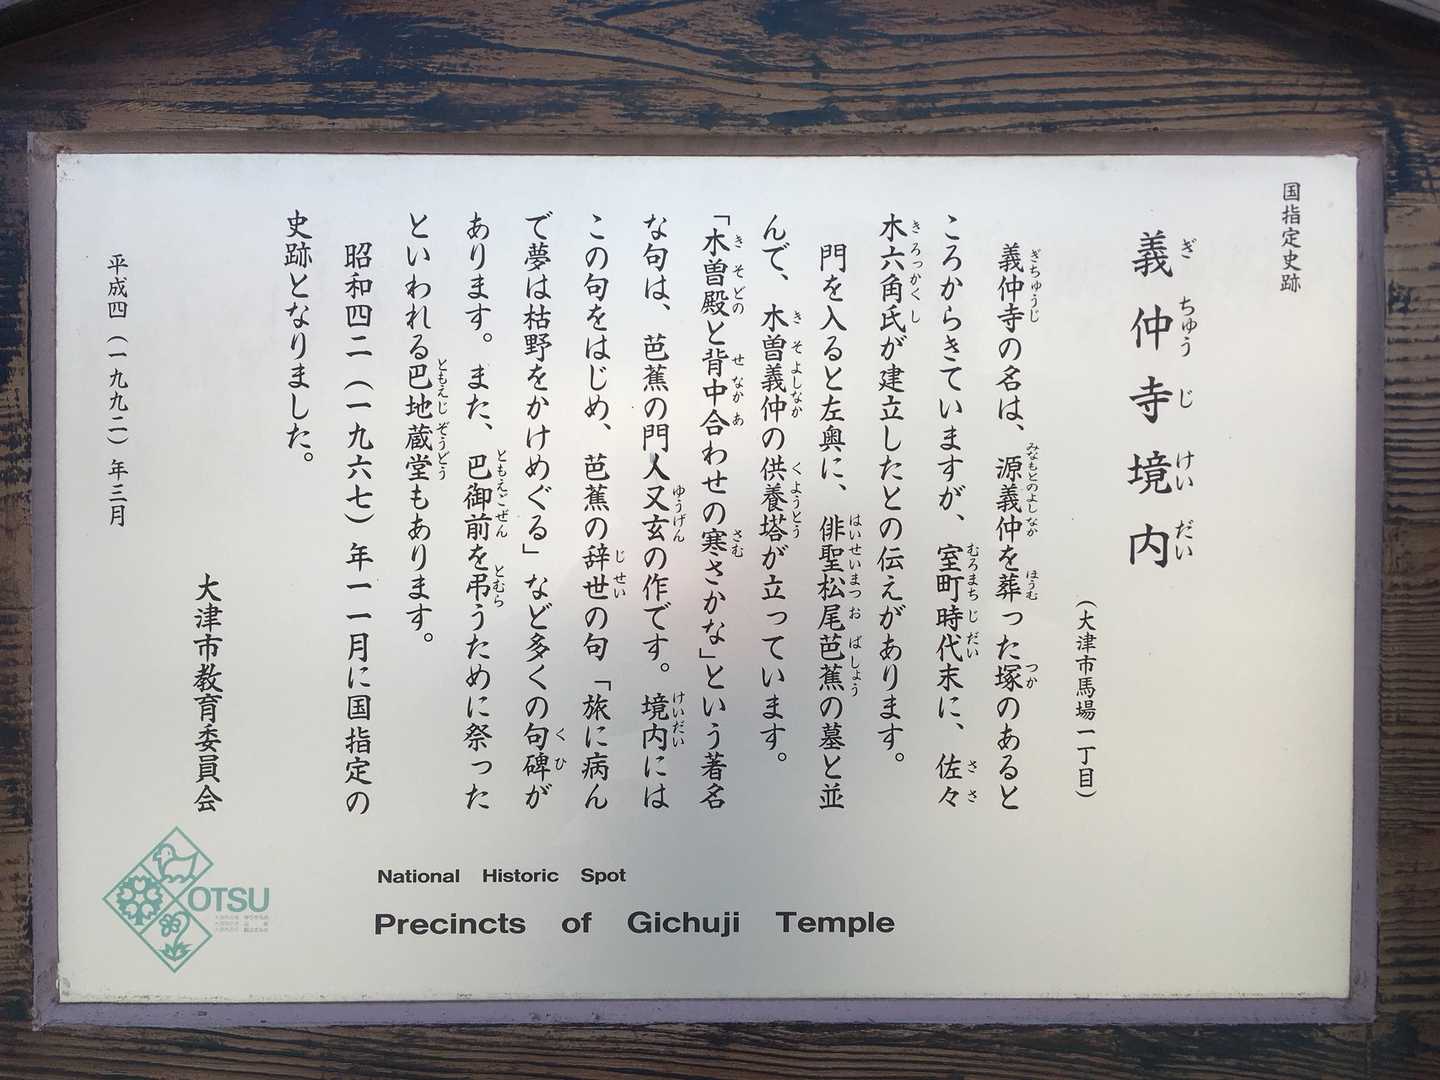 国指定史跡
義仲寺境内
ぎちゅうじけいだい
（大津市馬場一丁目）
義仲寺の名は、源義仲を葬った塚のあると
ころからきていますが、室町時代末に、佐々
木六角氏が建立したとの伝えがあります。
門を入ると左奥に、俳聖松尾芭蕉の墓と並
んで、木曽義仲の供養塔が立っています。
「木曽殿と背中合わせの寒さかな」という著名
な句は、芭蕉の門人又玄の作です。境内には
この句をはじめ、芭蕉の辞世の句「旅に病ん
で夢は枯野をかけめぐる」など多くの句碑が
あります。また、巴御前を弔うために祭った
といわれる巴地蔵堂もあります。
昭和四二（一九六七）年一一月に国指定の
史跡となりました。
大津市教育委員会
平成四（一九九二）年三月
National Historic Spot
Precincts of Gichuji Temple
OTSU